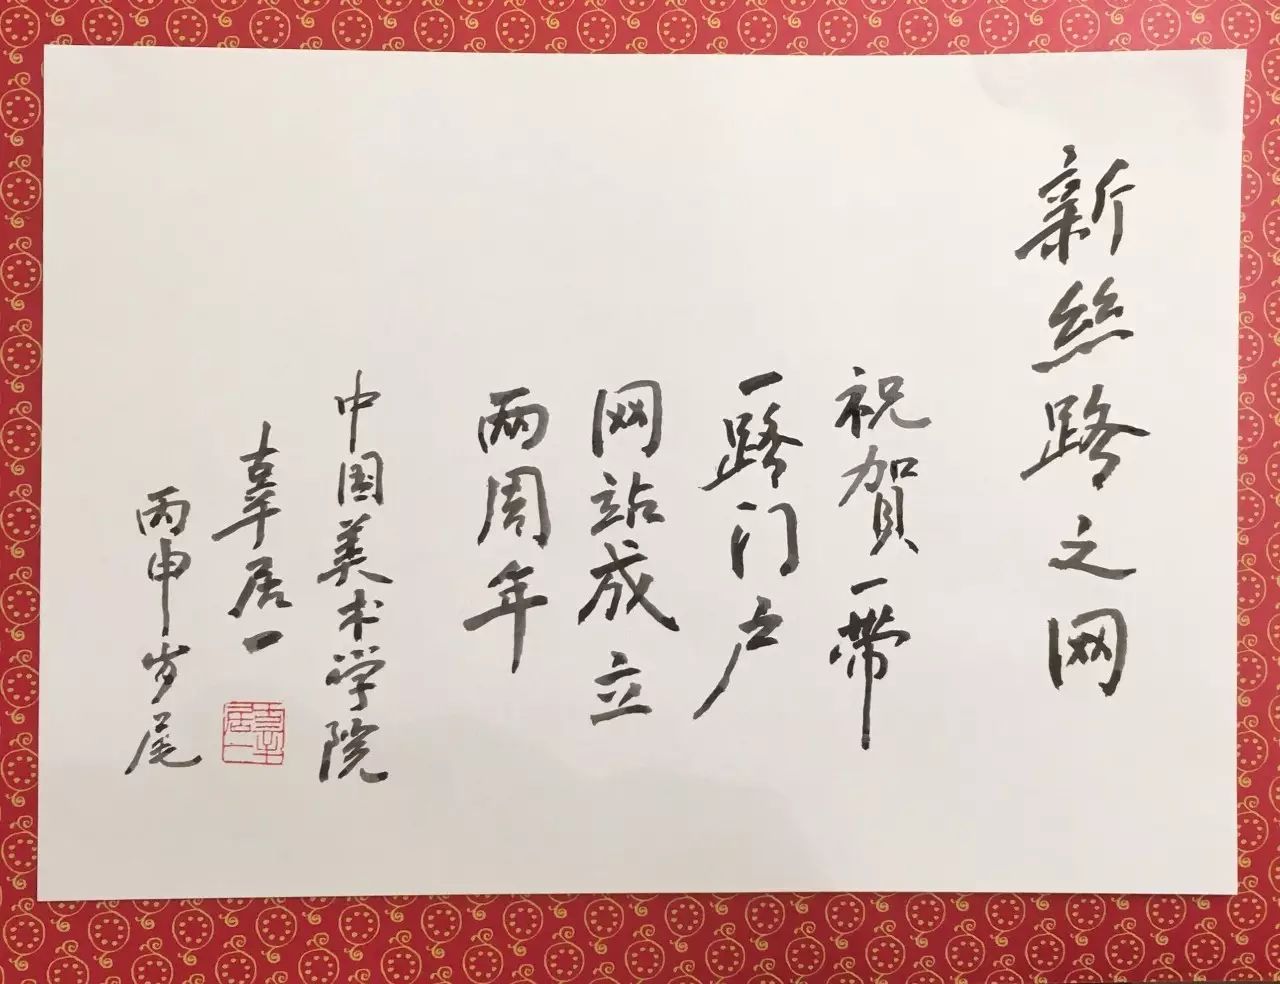 新絲路之网
祝賀一带
一路门户
网站成立
两周年
中国美术学院
辜居一
丙申岁尾
辜居一